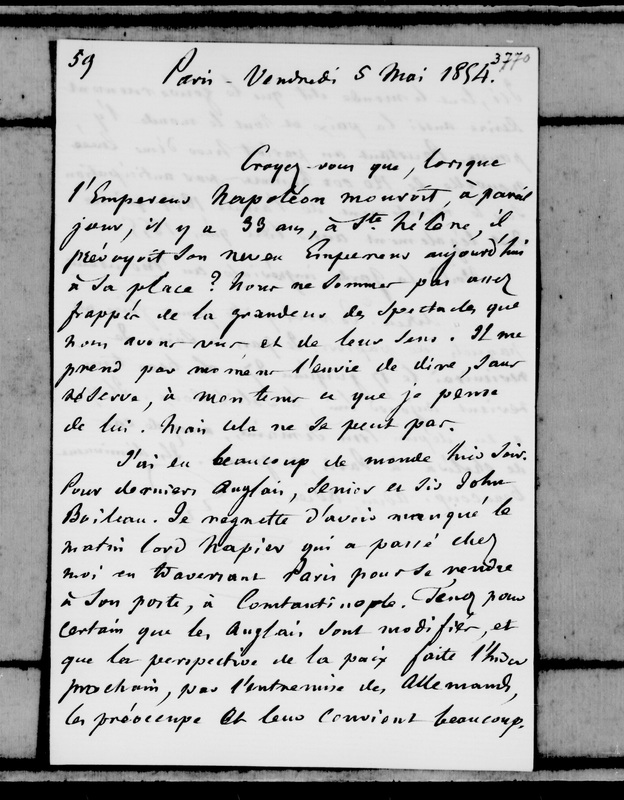 59
3770
Paris - Vendredi 5 Mai 1854.
Croyez-vous que, lorsque
l'Empereur Napoléon mouroit, à pareil
jour, il y a 33 ans, à Ste Hélène, il
prévoyoit son neveu Empereur aujourd'hui
à sa place ? Nous ne sommes pas assez
frappés de la grandeur des spectacles que
nous avons vus et de leur sens. Il me
prend par moment l'envie de dire, sans
réserve, à mon tems ce que je pense
de lui. Mais cela ne se peut pas.
J'ai eu beaucoup de monde hier soir.
Pour derniers Anglais, Senior et Sir John
Boileau. Je regrette d'avoir manqué le
matin lord Napier qui a passé chez
moi en traversant Paris pour se rendre
à son poste, à Constantinople. Tenez pour
certain que les Anglais sont modifiés, et
que la perspective de la paix faite l'hiver
prochain, par l'entremise des Allemands,
les préoccupe et leur convient beaucoup.